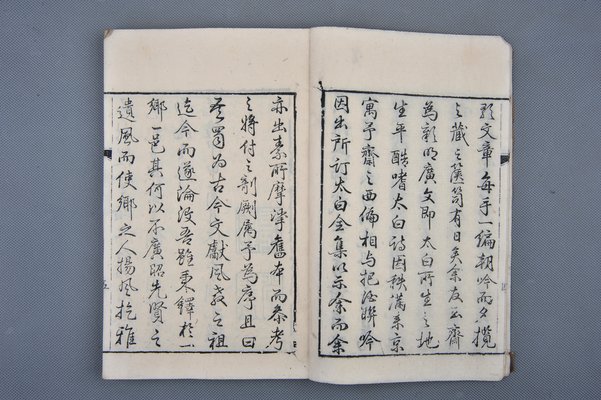 文章每手一編朝吟而夕攬
之藏之篋笥有日矣余友齋
為彰明廣文即太白所生之地
生平酷嗜太白詩因秩滿來京
寓予齋之西偏相与把酒聯吟
因出所訂太白全集以示余而余
亦出素所摩挲舊本而參考
之將付之剞劂属予為序且曰
吾蜀為古今文獻風教之祖
迄今而遂淪没吾雖秉鐸於一
鄉一邑其何以不廣昭先賢之
遺風而使鄉之人揚風扢雅